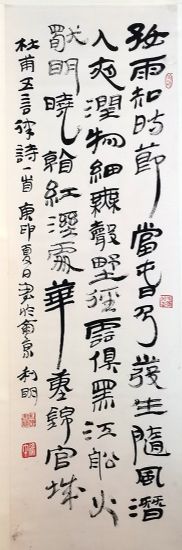 好雨知時節當春乃發生隨風潛
入夜潤物細無聲野徑雲俱黑江舩火
獨明曉看紅溼處華重錦官城
杜甫五言律詩一首庚夏日書於南京利明